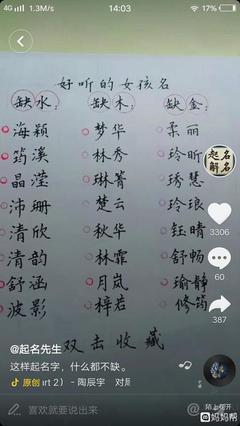 4G 1.3M/s 14:03 17%
好听的女孩名
缺水: 缺木: 缺金:
海颖 梦华 柔丽
筠溪 林秀 玲昕
晶滢 琳箐 琇慧
沛珊 楚云 玲琅
清欣 秋华 钰晴
清韵 林霏 舒畅
舒涵 月岚 瑜静
波影 梓若 修筠
双击收藏
起名
解名
3306
6
387
@起名先生
这样起名字，什么都不缺。
原创 irt 2） - 陶辰宇 对
喜欢就要说出来
妈妈帮